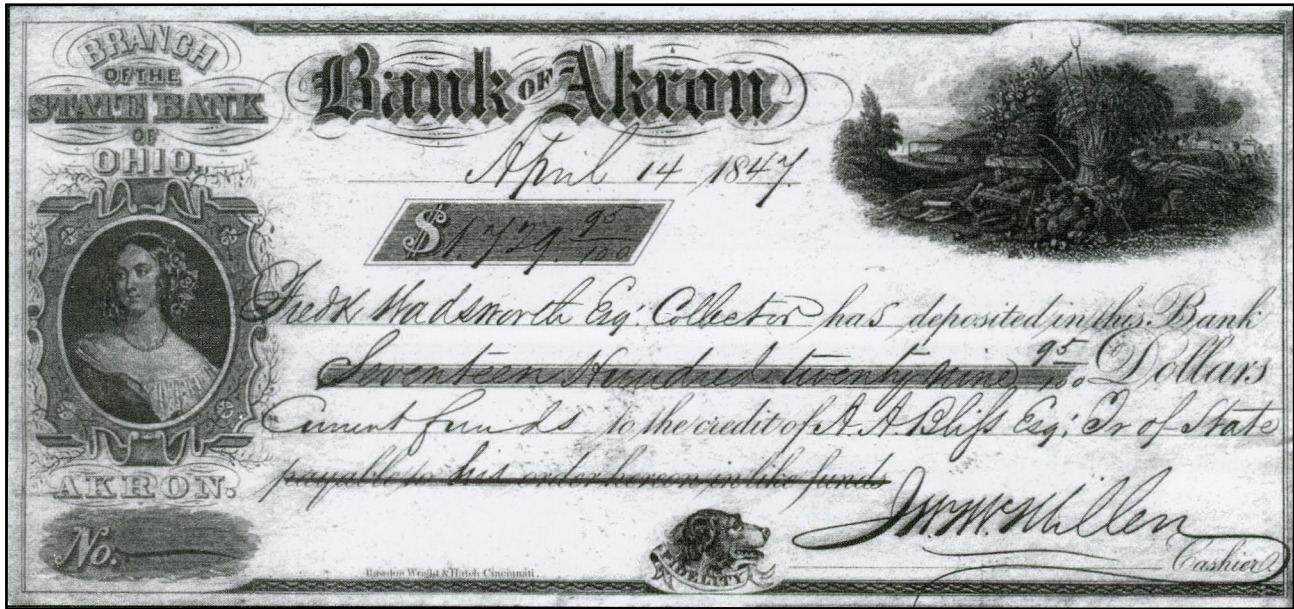 BRANCH
OF THE
STATE BANK
OF
OHIO.
Bank OF Akron
April 14 1847
$1.729. 95/100
Fredk Wadsworth Esqr Collector has deposited in this Bank
Seventeen Hundred twenty nine 95/100 Dollars
Current funds to the credit of A. A. Bliss Esqr Tr of State
payable to his order hereon in like funds
AKRON.
J. W. McMillen
Cashier
No.
FIDELITY
Rawdon Wright & Hatch Cincinnati.